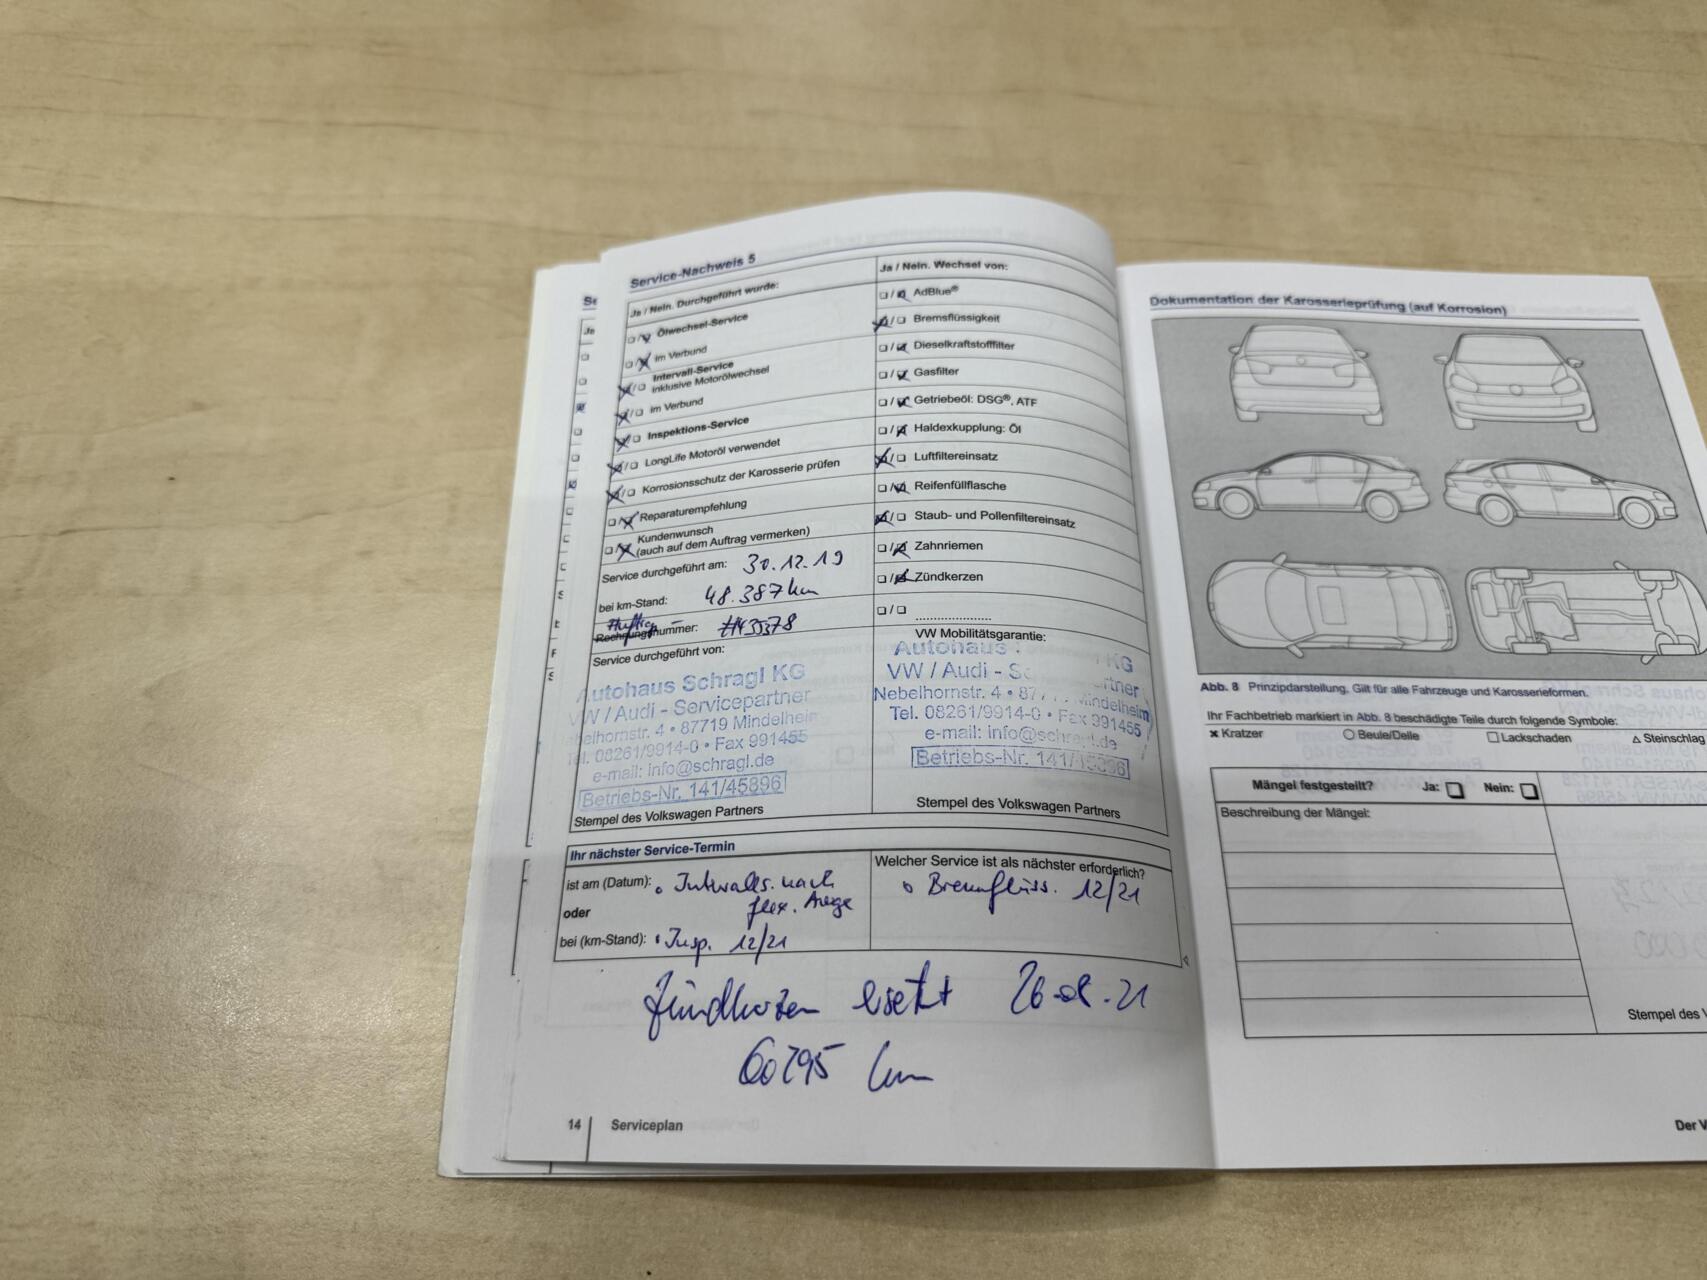 Service-Nachweis 5
Ja / Nein. Durchgeführt wurde:
Ölwechsel-Service
im Verbund
Intervall-Service
inklusive Motorölwechsel
im Verbund
Inspektions-Service
LongLife Motoröl verwendet
Korrosionsschutz der Karosserie prüfen
Reparaturempfehlung
Kundenwunsch
(auch auf dem Auftrag vermerken)
Service durchgeführt am: 30.12.19
bei km-Stand: 48.387 km
Rechnungsnummer:
Service durchgeführt von:
Autohaus Schragl KG
VW / Audi - Servicepartner
Nebelhornstr. 4 • 87719 Mindelheim
Tel. 08261/9914-0 • Fax 991455
e-mail: info@schragl.de
Betriebs-Nr. 141/45896
Stempel des Volkswagen Partners
Ja / Nein. Wechsel von:
AdBlue®
Bremsflüssigkeit
Dieselkraftstofffilter
Gasfilter
Getriebeöl: DSG®, ATF
Haldexkupplung: Öl
Luftfiltereinsatz
Reifenfüllflasche
Staub- und Pollenfiltereinsatz
Zahnriemen
Zündkerzen
VW Mobilitätsgarantie:
Autohaus KG
VW / Audi -
Nebelhornstr. 4 • Mindelheim
Tel. 08261/9914-0 • Fax 991455
e-mail: info@schragl.de
Betriebs-Nr. 141/45896
Stempel des Volkswagen Partners
Ihr nächster Service-Termin
ist am (Datum): Intervalls. nach
flex. Anzeige
oder
bei (km-Stand): Insp. 12/21
Welcher Service ist als nächster erforderlich?
Bremsflüss. 12/21
Zündkerzen ersetzt 26.08.21
60295 km
14 Serviceplan
Dokumentation der Karosserieprüfung (auf Korrosion)
Abb. 8 Prinzipdarstellung. Gilt für alle Fahrzeuge und Karosserieformen.
Ihr Fachbetrieb markiert in Abb. 8 beschädigte Teile durch folgende Symbole:
Kratzer Beule/Delle Lackschaden Steinschlag
Mängel festgestellt? Ja: Nein:
Beschreibung der Mängel:
Stempel des V
Der V